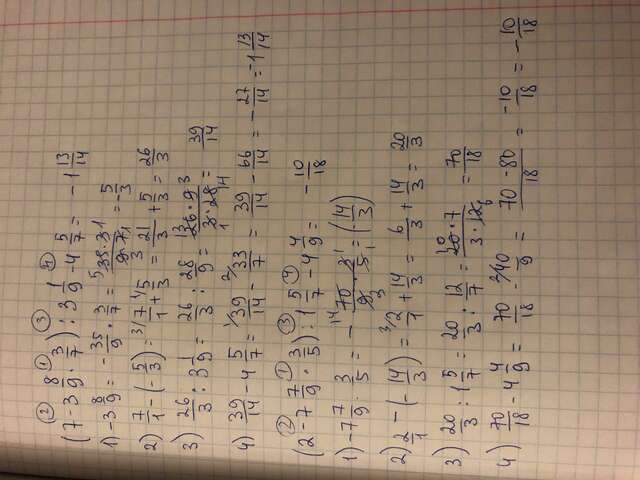 ② ① ③ ④
(7 - 3 8/9 · 3/7) : 3 1/9 - 4 5/7 = -1 13/14
1) -3 8/9 · 3/7 = -35/9 · 3/7 = 35·3/9·7 = -5/3
2) 7/1 - (-5/3) = 7/1 + 5/3 = 21/3 + 5/3 = 26/3
3) 26/3 : 3 1/9 = 26/3 : 28/9 = 26·9/3·28 = 39/14
4) 39/14 - 4 5/7 = 39/14 - 33/7 = 39/14 - 66/14 = -27/14 = -1 13/14
② ① ③ ④
(2 - 7 7/9 · 3/5) : 1 5/7 - 4 4/9 = -10/18
1) -7 7/9 · 3/5 = -70·3/9·5 = (-14/3)
2) 2/1 - (-14/3) = 2/1 + 14/3 = 6/3 + 14/3 = 20/3
3) 20/3 : 1 5/7 = 20/3 : 12/7 = 20·7/3·12 = 70/18
4) 70/18 - 4 4/9 = 70/18 - 40/9 = 70-80/18 = -10/18 = -10/18